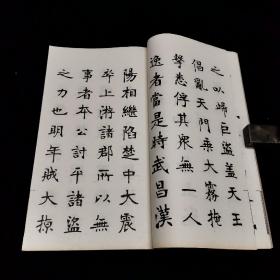 之以歸巨盜蓋天王
倡亂天門乘大霧掩
擊悉俘其衆無一人
逸者當是時武昌漢
陽相繼陷楚中大震
卒上游諸郡所以無
事者本公討平諸盜
之力也明年賊大掠